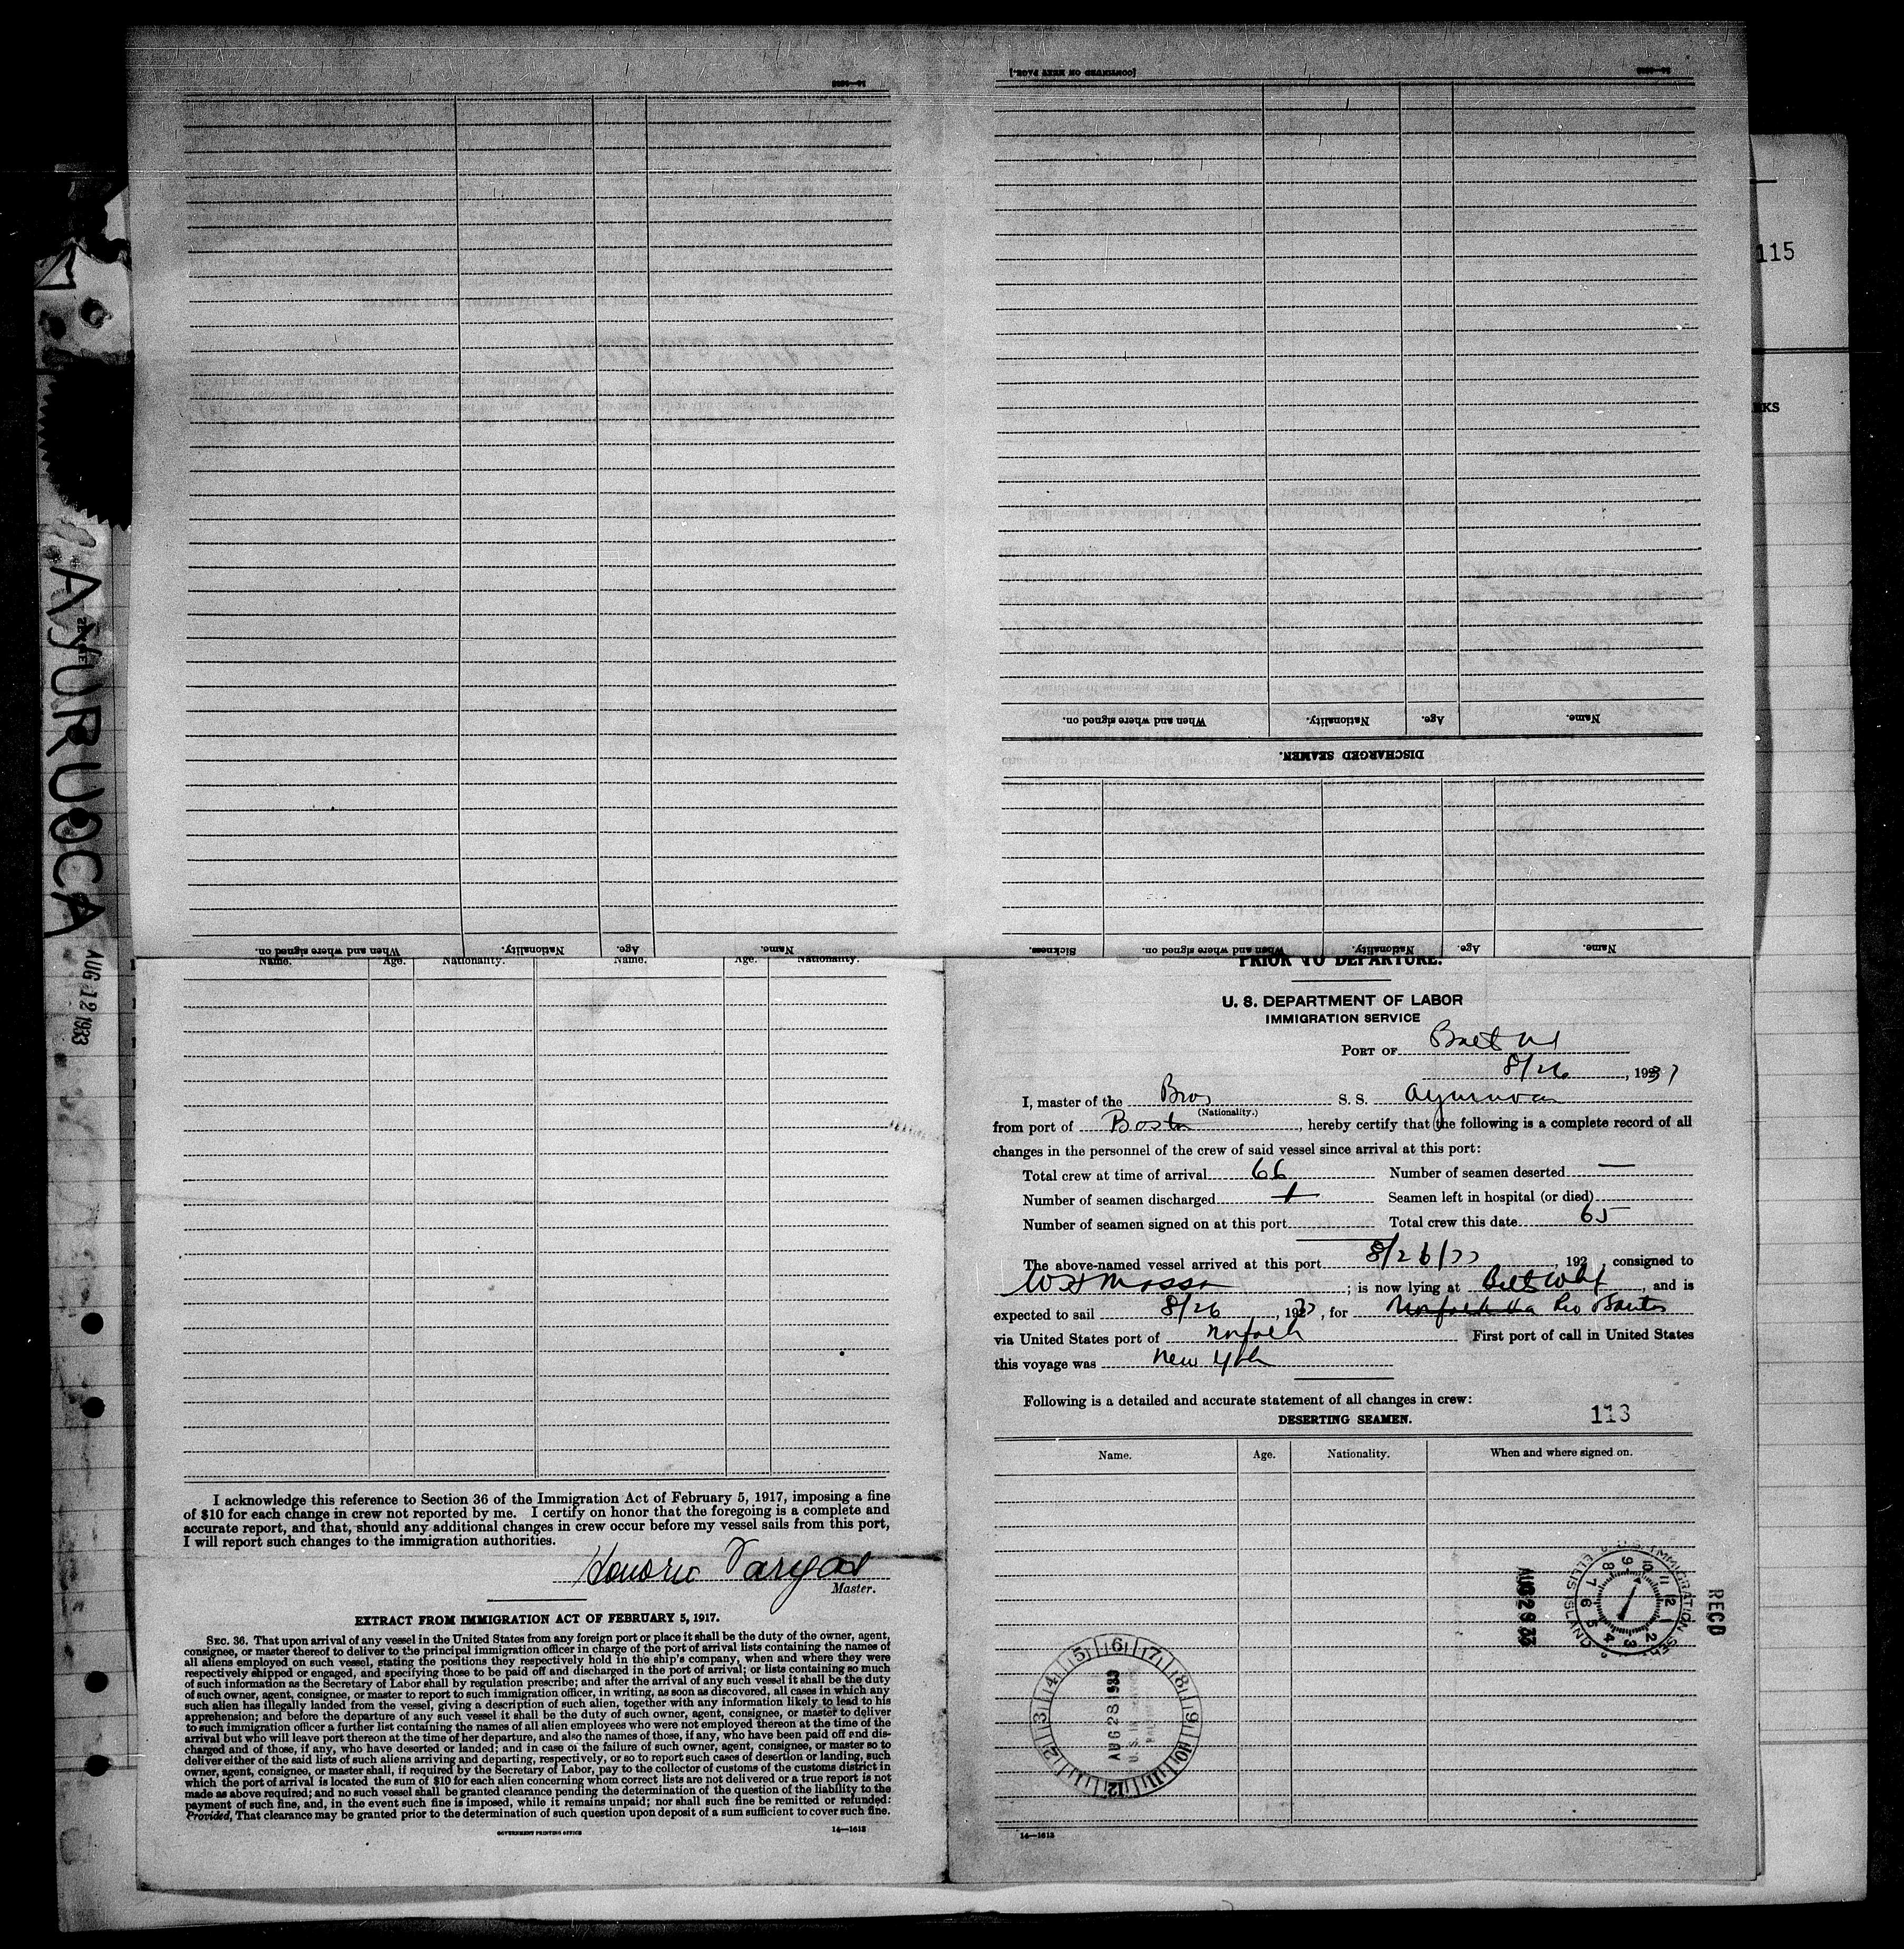 [CONTINUED ON NEXT PAGE.]
14—1613
14—1613
115
RKS
AYURUOCA
AUG 12 1933
When and where signed on.
Nationality.
Age.
Name.
DISCHARGED SEAMEN.
Sickness.
When and where signed on.
Nationality.
Age.
Name.
When and where signed on.
Nationality.
Age.
Name.
Name. Age. Nationality. Name. Age. Nationality.
I acknowledge this reference to Section 36 of the Immigration Act of February 5, 1917, imposing a fine
of $10 for each change in crew not reported by me. I certify on honor that the foregoing is a complete and
accurate report, and that, should any additional changes in crew occur before my vessel sails from this port,
I will report such changes to the immigration authorities.
Honorio Vargas
Master.
EXTRACT FROM IMMIGRATION ACT OF FEBRUARY 5, 1917.
SEC. 36. That upon arrival of any vessel in the United States from any foreign port or place it shall be the duty of the owner, agent,
consignee, or master thereof to deliver to the principal immigration officer in charge of the port of arrival lists containing the names of
all aliens employed on such vessel, stating the positions they respectively hold in the ship's company, when and where they were
respectively shipped or engaged, and specifying those to be paid off and discharged in the port of arrival; or lists containing so much
of such information as the Secretary of Labor shall by regulation prescribe; and after the arrival of any such vessel it shall be the duty
of such owner, agent, consignee, or master to report to such immigration officer, in writing, as soon as discovered, all cases in which any
such alien has illegally landed from the vessel, giving a description of such alien, together with any information likely to lead to his
apprehension; and before the departure of any such vessel it shall be the duty of such owner, agent, consignee, or master to deliver
to such immigration officer a further list containing the names of all alien employees who were not employed thereon at the time of the
arrival but who will leave port thereon at the time of her departure, and also the names of those, if any, who have been paid off and dis-
charged and of those, if any, who have deserted or landed; and in case of the failure of such owner, agent, consignee, or master so to
deliver either of the said lists of such aliens arriving and departing, respectively, or so to report such cases of desertion or landing, such
owner, agent, consignee, or master shall, if required by the Secretary of Labor, pay to the collector of customs of the customs district in
which the port of arrival is located the sum of $10 for each alien concerning whom correct lists are not delivered or a true report is not
made as above required; and no such vessel shall be granted clearance pending the determination of the question of the liability to the
payment of such fine, and, in the event such fine is imposed, while it remains unpaid; nor shall such fine be remitted or refunded:
Provided, That clearance may be granted prior to the determination of such question upon deposit of a sum sufficient to cover such fine.
GOVERNMENT PRINTING OFFICE
14—1613
PRIOR TO DEPARTURE.
U. S. DEPARTMENT OF LABOR
IMMIGRATION SERVICE
PORT OF Balt Md
8/26, 1933
I, master of the Braz S. S. Ayuruoca
(Nationality.)
from port of Boston, hereby certify that the following is a complete record of all
changes in the personnel of the crew of said vessel since arrival at this port:
Total crew at time of arrival 66 Number of seamen deserted —
Number of seamen discharged 1 Seamen left in hospital (or died)
Number of seamen signed on at this port Total crew this date 65
The above-named vessel arrived at this port 8/26/33, 192 , consigned to
; is now lying at , and is
expected to sail 8/26, 1933, for Norfolk Va Rio Santos
via United States port of Norfolk First port of call in United States
this voyage was New York
Following is a detailed and accurate statement of all changes in crew:
DESERTING SEAMEN.
113
Name. Age. Nationality. When and where signed on.
AUG 29 33
IMMIGRATION SER. ELLIS ISLAND
REC'D
AUG 28 1933
14—1613